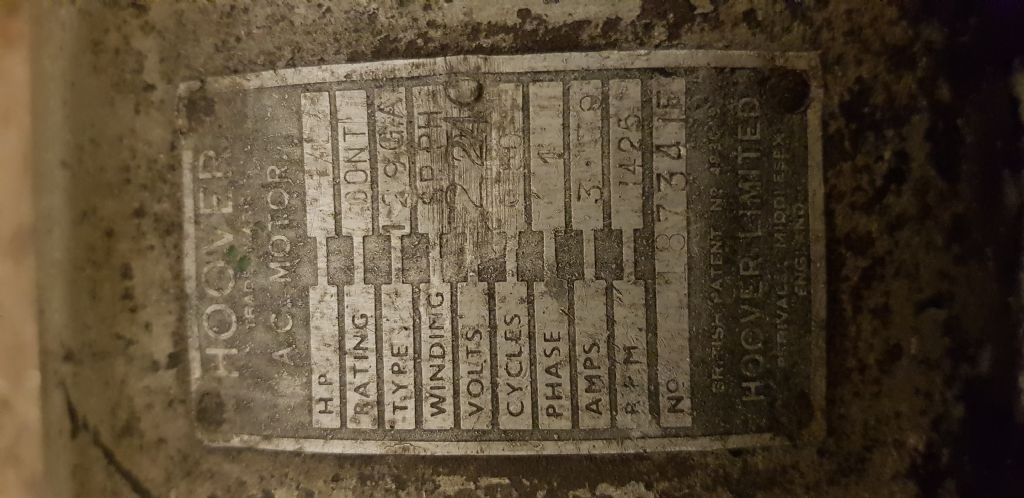 HOOVER
TRADE MARK
A.C. MOTOR
H P
RATING CONT
TYPE 1 29GA
WINDING SP PH
VOLTS 240
CYCLES
PHASE 1
AMPS 3.
R P M 1425
No 8 7341E
BRITISH PATENT NR
HOOVER LIMITED
PERIVALE, MIDDLESEX
ENGLAND